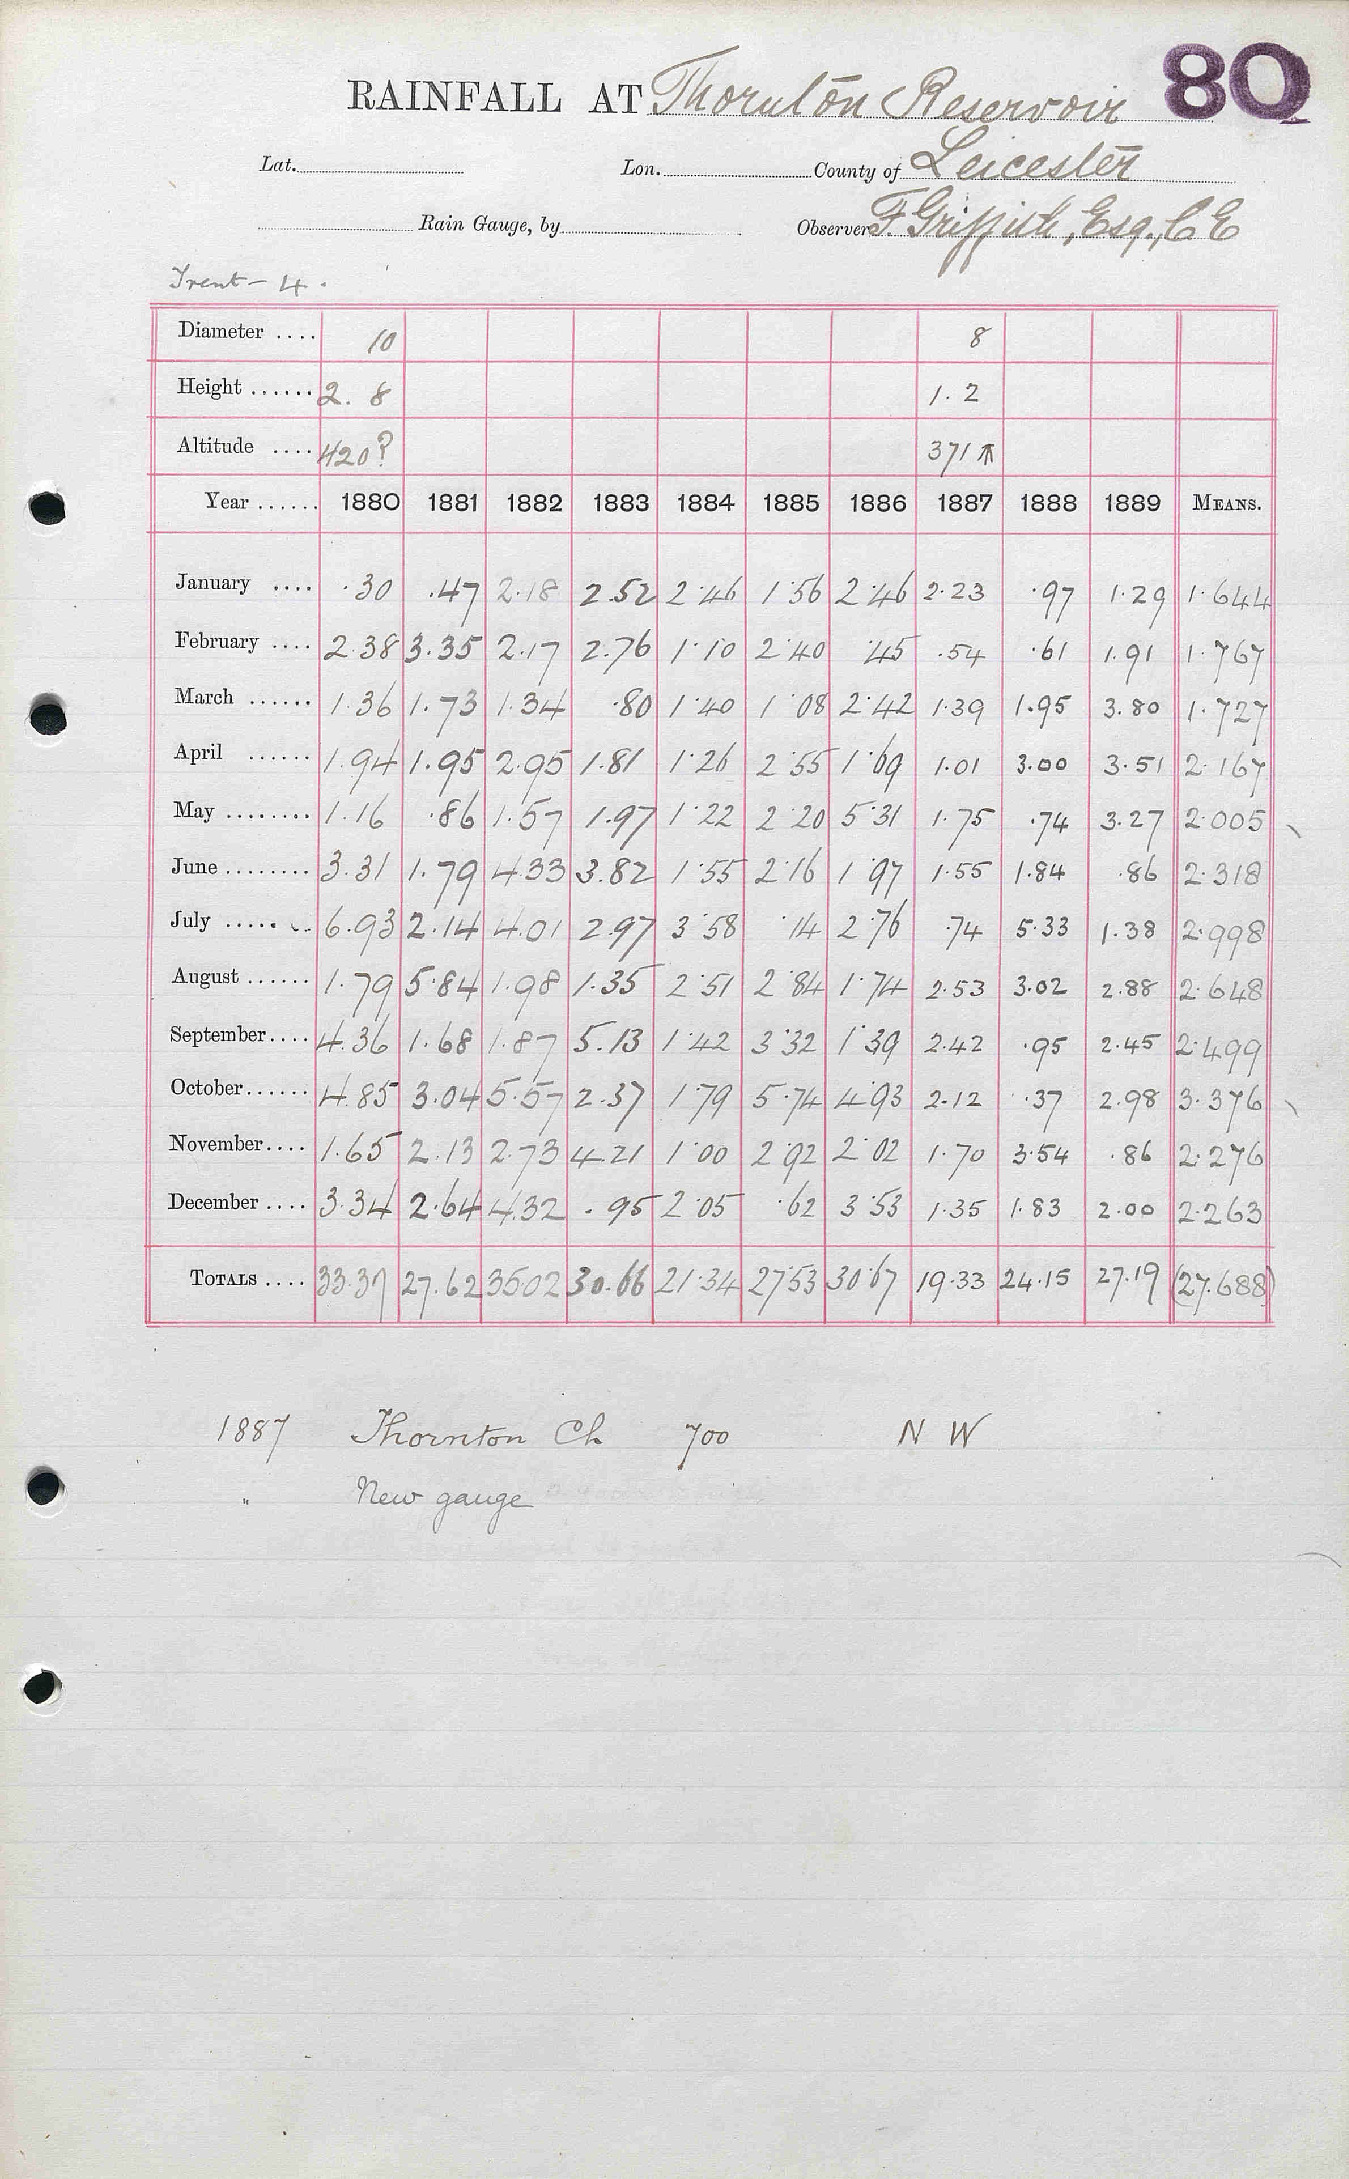 RAINFALL AT Thornton Reservoir 80
Lat. Lon. County of Leicester
Rain Gauge, by Observer F. Griffith, Esq., C E
Trent - 4.
Diameter .... 10 8
Height ...... 2. 8 1. 2
Altitude .... 420? 371
Year ...... 1880 1881 1882 1883 1884 1885 1886 1887 1888 1889 MEANS.
January .... .30 .47 2.18 2.52 2.46 1.56 2.46 2.23 .97 1.29 1.644
February .... 2.38 3.35 2.17 2.76 1.10 2.40 .45 .54 .61 1.91 1.767
March ...... 1.36 1.73 1.34 .80 1.40 1.08 2.42 1.39 1.95 3.80 1.727
April ...... 1.94 1.95 2.95 1.81 1.26 2.55 1.69 1.01 3.00 3.51 2.167
May ........ 1.16 .86 1.57 1.97 1.22 2.20 5.31 1.75 .74 3.27 2.005
June ........ 3.31 1.79 4.33 3.82 1.55 2.16 1.97 1.55 1.84 .86 2.318
July ........ 6.93 2.14 4.01 2.97 3.58 .14 2.76 .74 5.33 1.38 2.998
August ...... 1.79 5.84 1.98 1.35 2.51 2.84 1.74 2.53 3.02 2.88 2.648
September .... 4.36 1.68 1.87 5.13 1.42 3.32 1.39 2.42 .95 2.45 2.499
October ...... 4.85 3.04 5.57 2.37 1.79 5.74 4.93 2.12 .37 2.98 3.376
November .... 1.65 2.13 2.73 4.21 1.00 2.92 2.02 1.70 3.54 .86 2.276
December .... 3.34 2.64 4.32 .95 2.05 .62 3.53 1.35 1.83 2.00 2.263
TOTALS .... 33.37 27.62 35.02 30.66 21.34 27.53 30.67 19.33 24.15 27.19 (27.688)
1887 Thornton Ch 700 N W
" New gauge